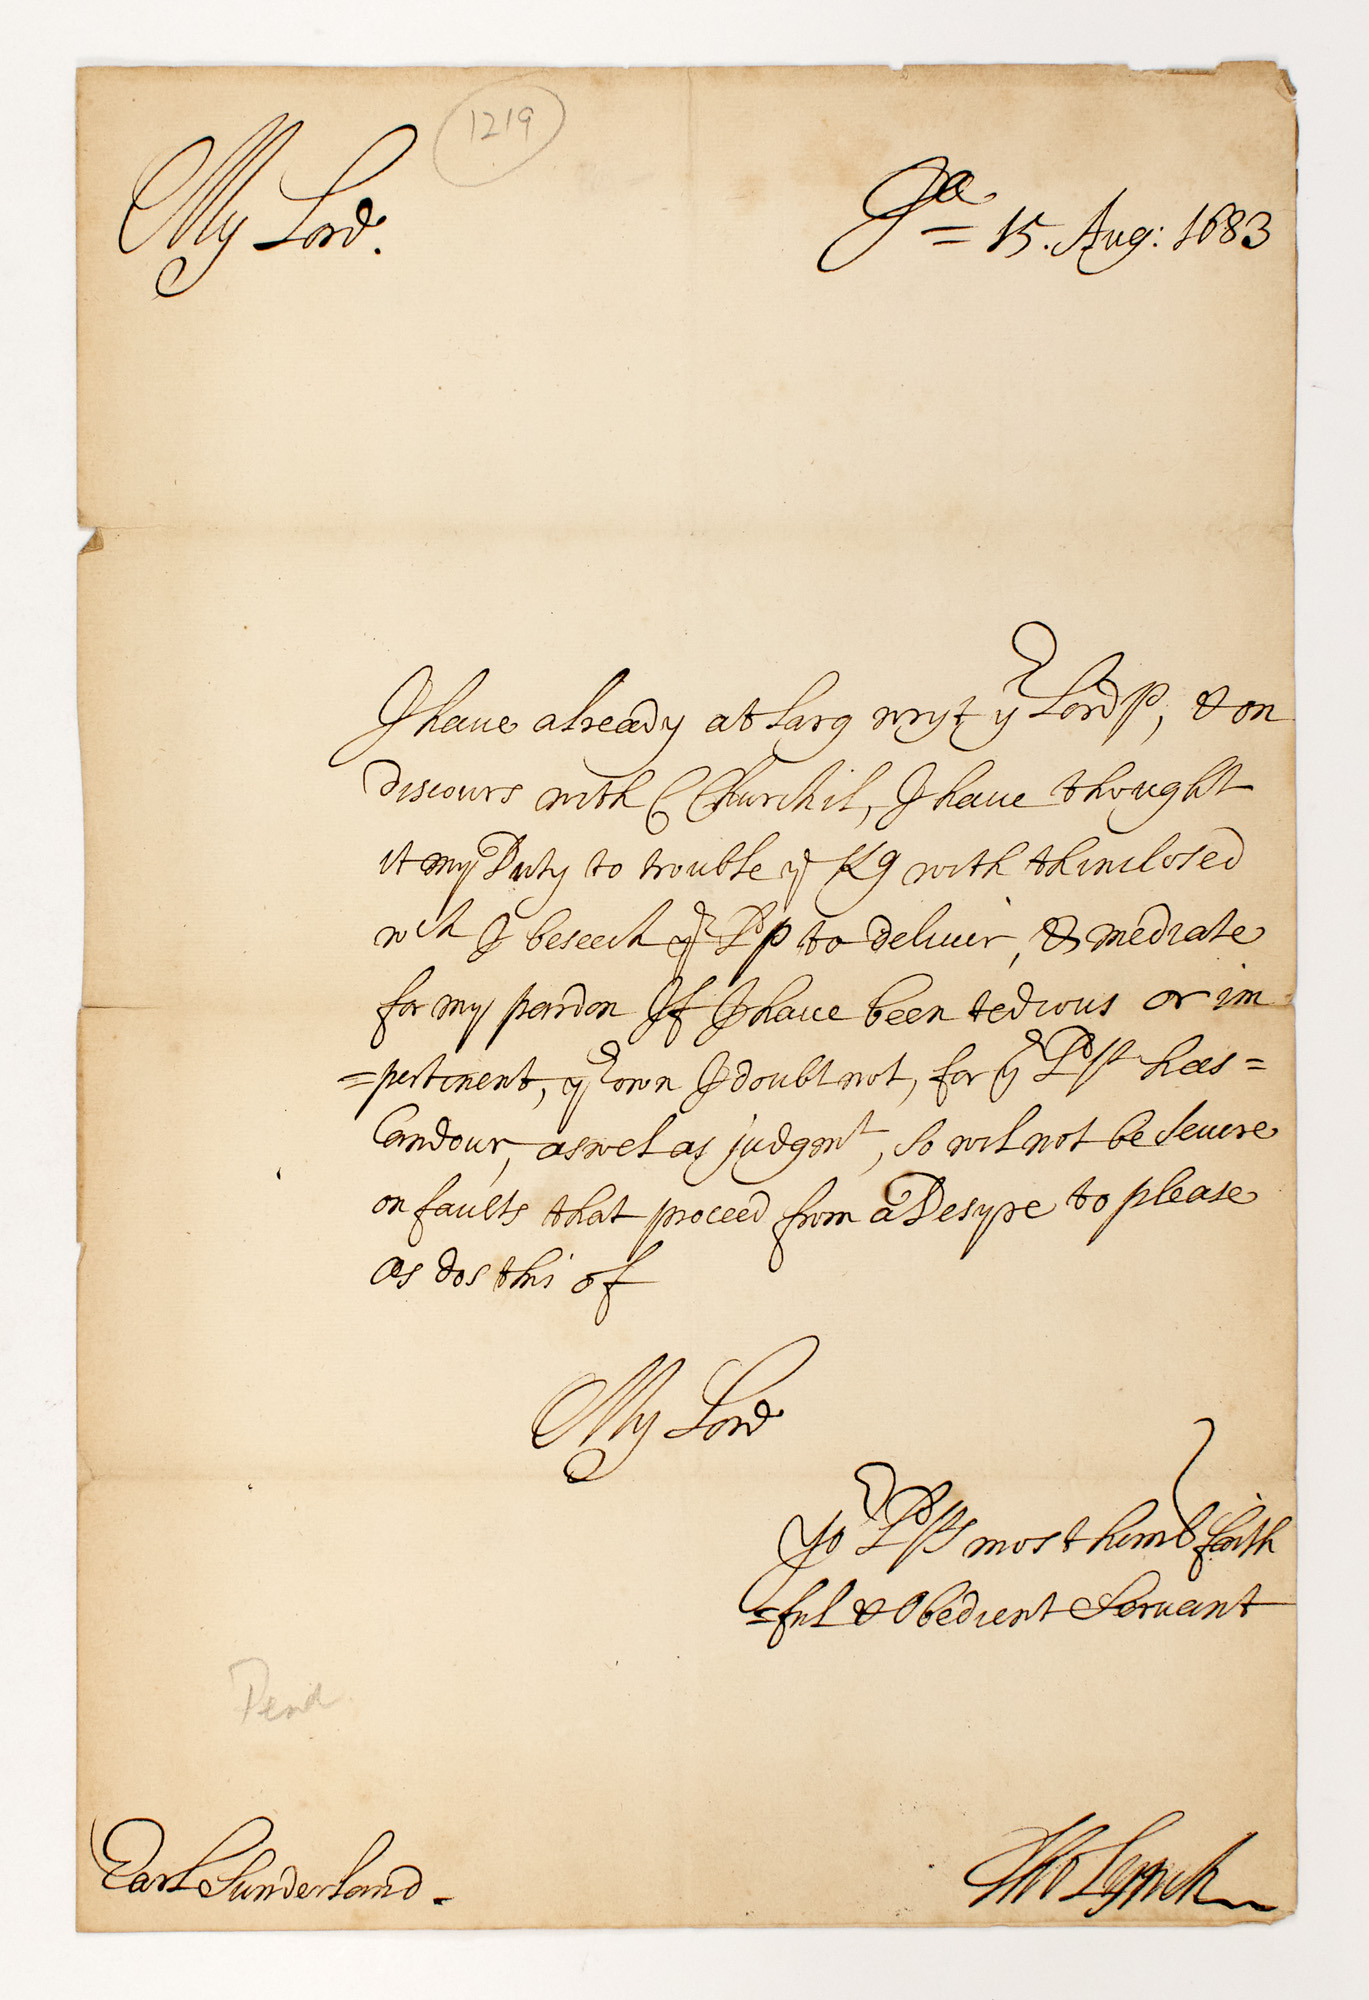 1219
My Lord.
Ja= 15. Aug: 1683
I haue already at larg wryt yr Lordp, & on
discours with C Churchil, I haue thought
it my Duty to trouble ye Kg with thinclosed
wch I beseech yr Ldp to deliuer, & mediate
for my pardon If I haue been tedious or im
=pertinent, yr own I doubt not, for yr Ldsp has=
Candour, aswel as judgmt, so wil not be seuere
on faults that proceed from a Desyre to please
as dos this of
My Lord
Yor Ldps most humb faith
=ful & Obedient Seruant
Pend
Earl Sunderland.
Tho Lynch